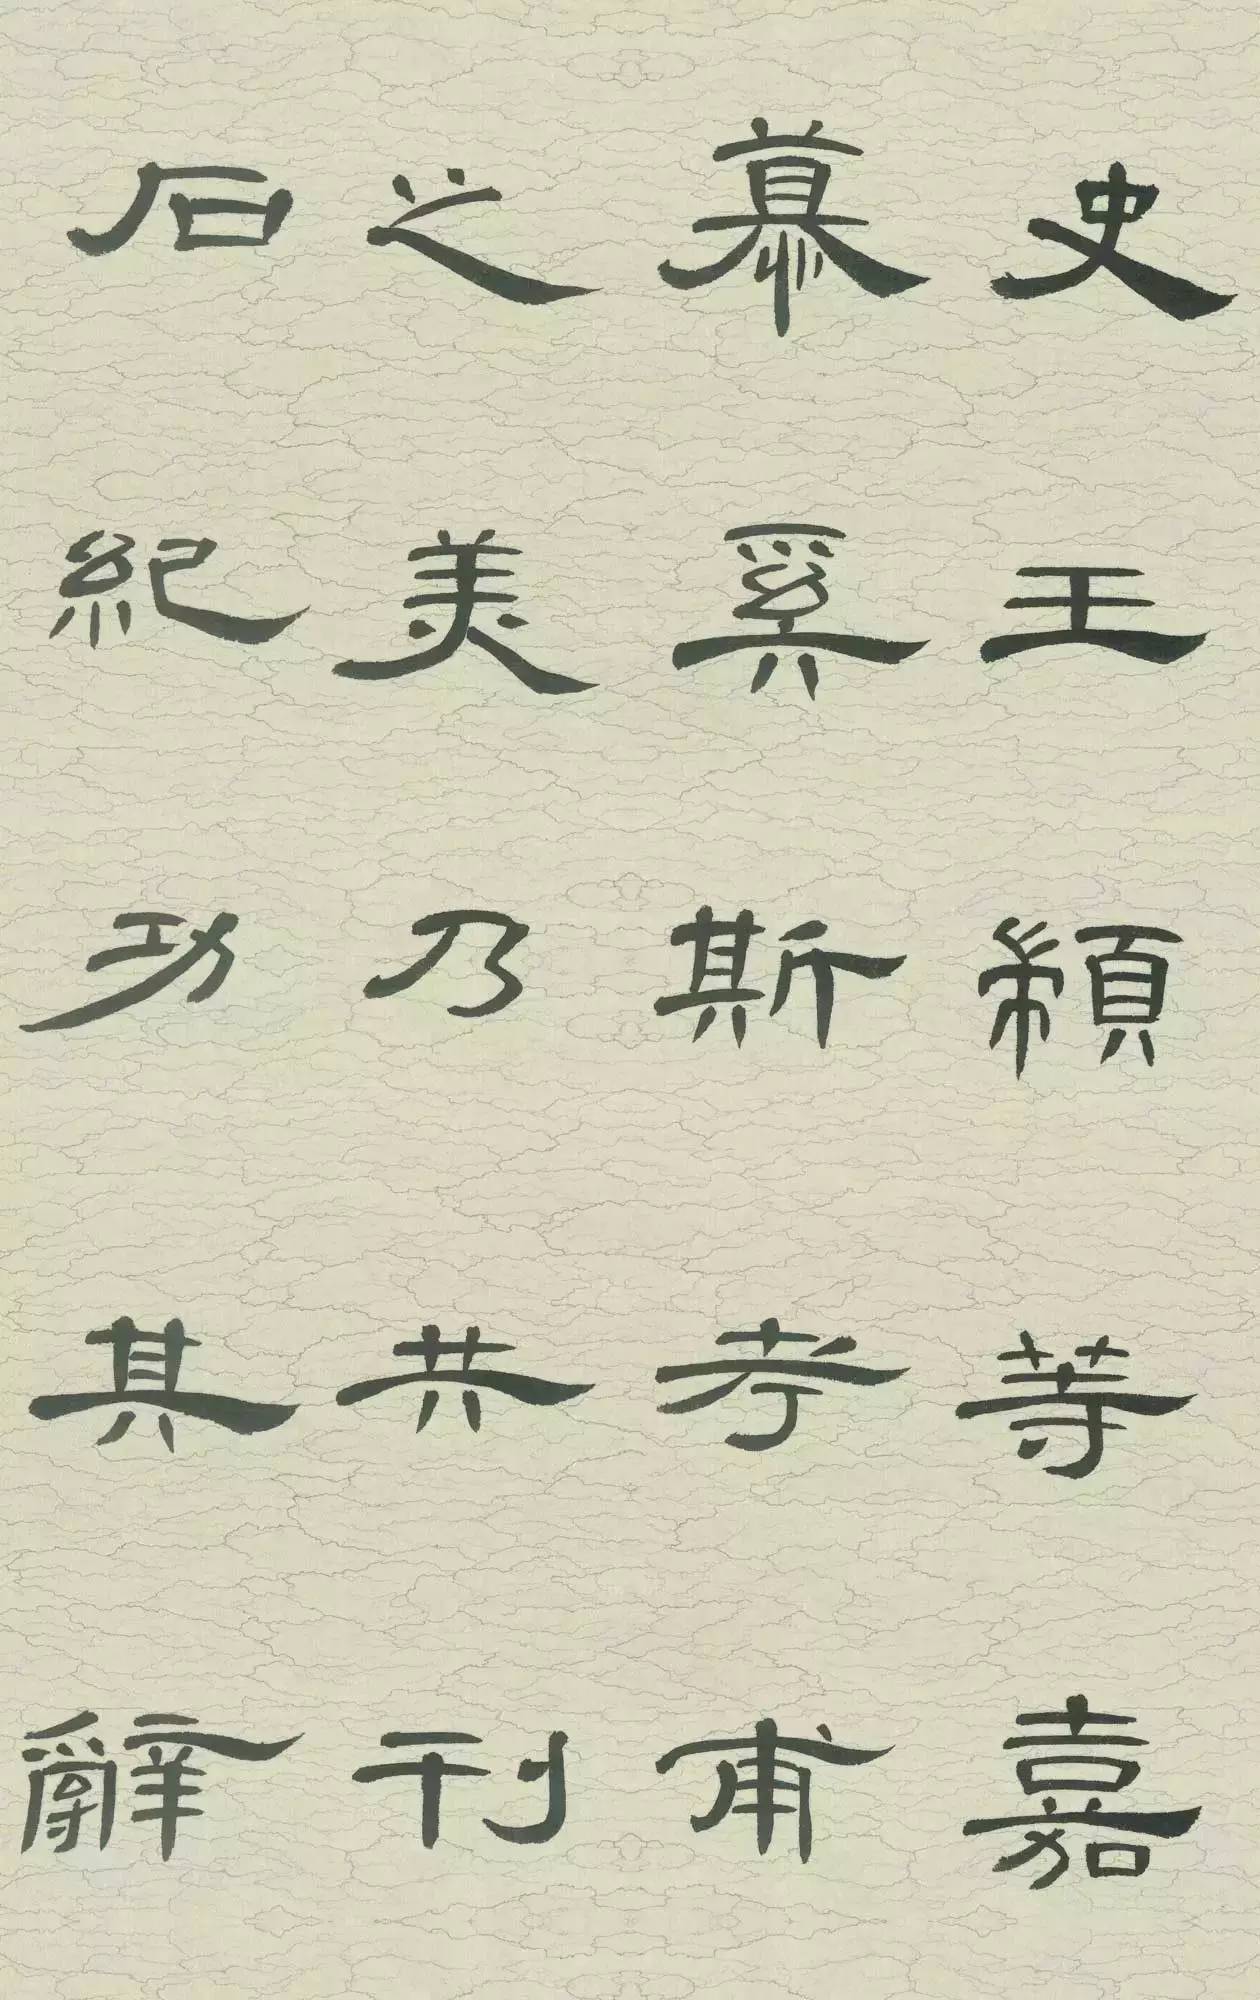 史王顓等嘉
慕奚斯考甫
之美乃共刊
石紀功其辭